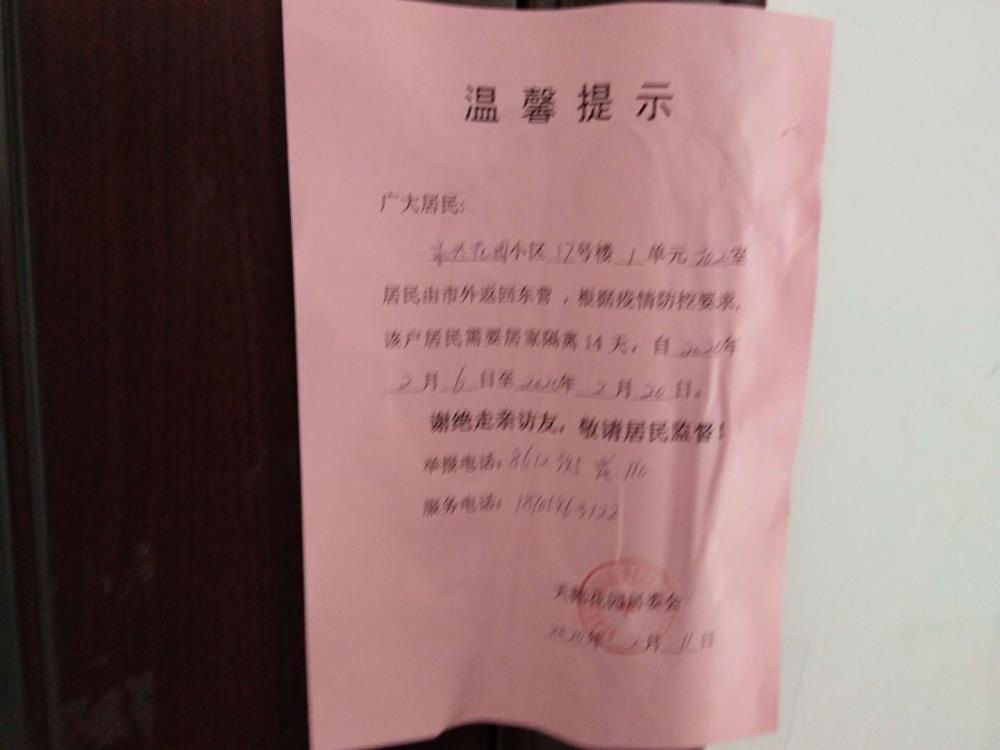 温馨提示
广大居民:
花园小区 17号楼 1 单元 302室
居民由市外返回东营，根据疫情防控要求,
该户居民需要居家隔离14天，自 2020年
2 月 6 日至 2020年 2 月 20 日。
谢绝走亲访友，敬请居民监督!
举报电话: 8612345 或 110
服务电话:
花园居委会
2020年 2 月 11 日